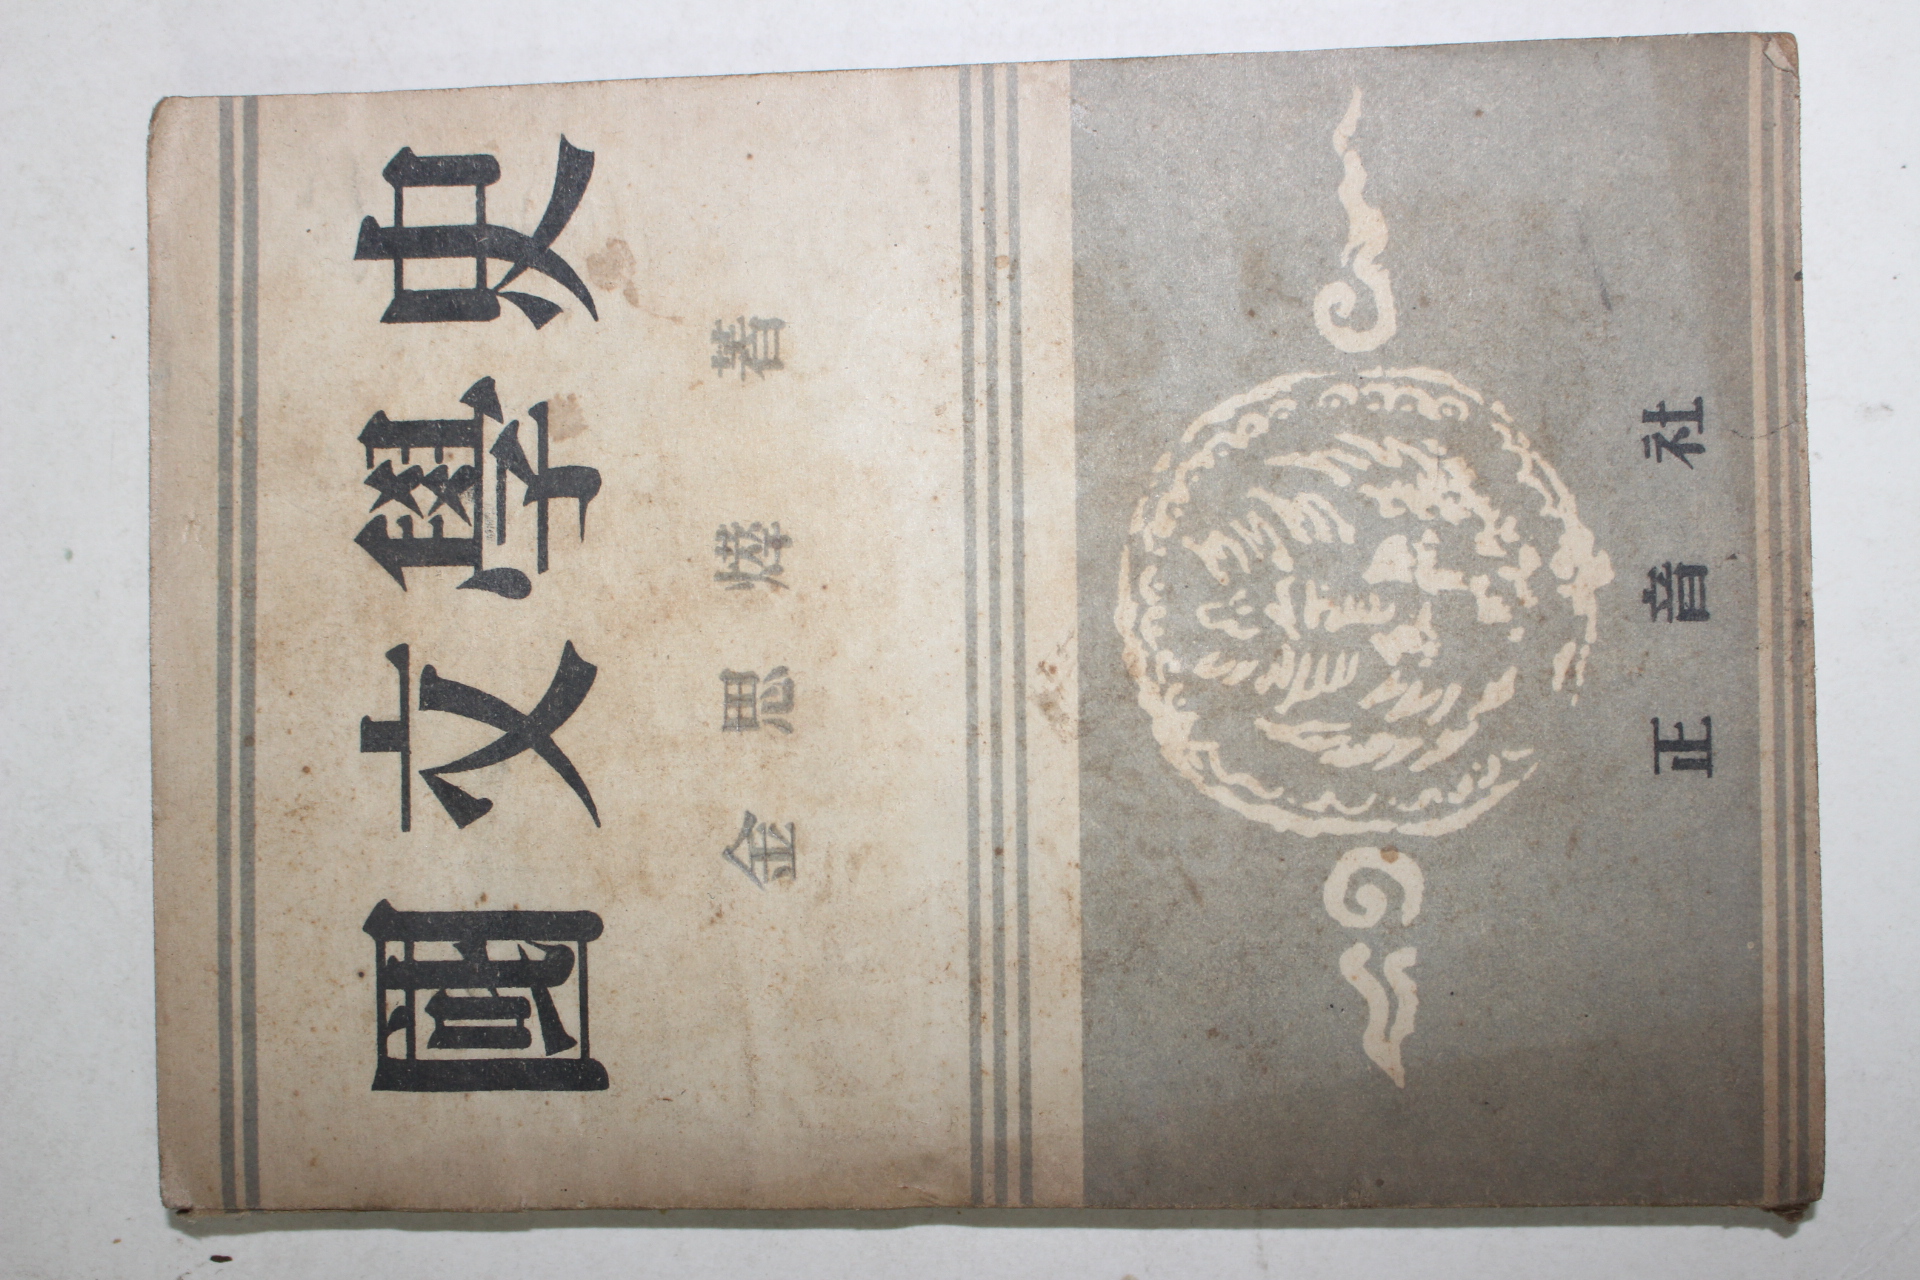 國文學史
金思燁著
正音社